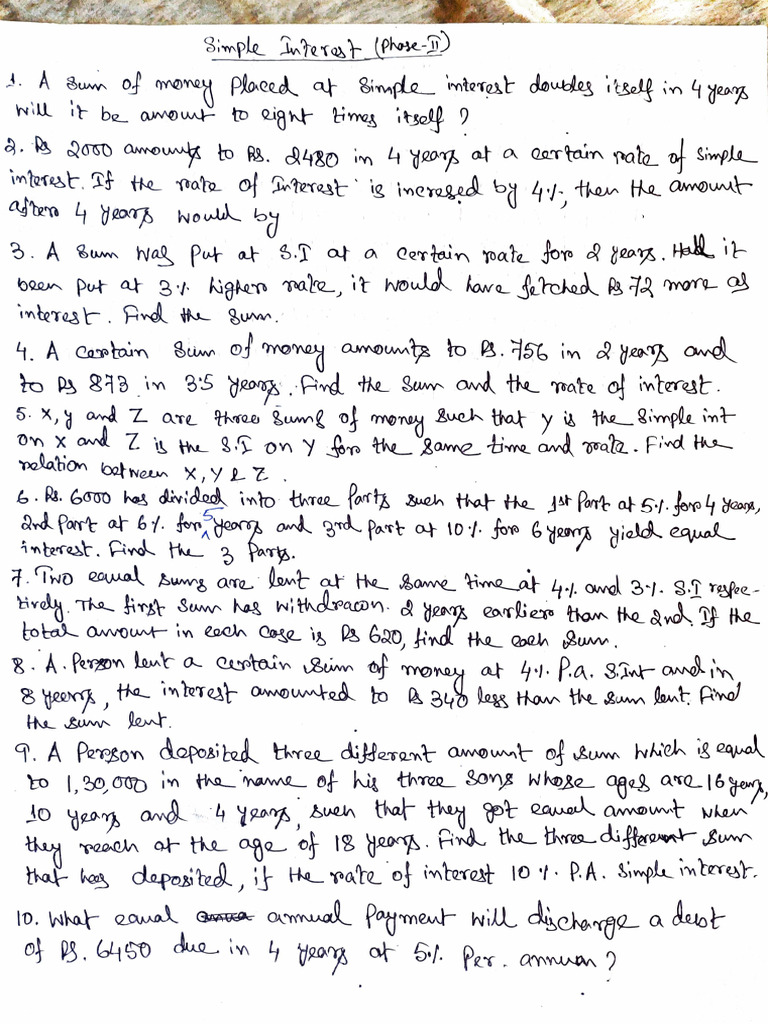 Simple Interest (Phase-II)
1. A sum of money placed at simple interest doubles itself in 4 years
will it be amount to eight times itself?
2. Rs 2000 amounts to Rs. 2480 in 4 years at a certain rate of simple
interest. If the rate of Interest is incresed by 4%, then the amount
after 4 years would by
3. A sum was put at S.I at a certain rate for 2 years. Had it
been put at 3% higher rate, it would have fetched Rs 72 more as
interest. Find the sum.
4. A certain sum of money amounts to Rs. 756 in 2 years and
to Rs 873 in 3.5 years. Find the sum and the rate of interest.
5. X, y and Z are three sums of money such that y is the simple int
on X and Z is the S.I on Y for the same time and rate. Find the
relation between X, Y & Z.
6. Rs. 6000 has divided into three parts such that the 1st part at 5% for 4 years,
2nd part at 6% for 5 years and 3rd part at 10% for 6 years yield equal
interest. Find the 3 parts.
7. Two equal sums are lent at the same time at 4% and 3% S.I respec-
tively. The first sum has withdrawn 2 years earlier than the 2nd. If the
total amount in each case is Rs 620, find the each sum.
8. A. Person lent a certain sum of money at 4% P.a. S.Int and in
8 years, the interest amounted to Rs 340 less than the sum lent. Find
the sum lent.
9. A Person deposited three different amount of sum which is equal
to 1,30,000 in the name of his three sons whose ages are 16 years,
10 years and 4 years, such that they got equal amount when
they reach at the age of 18 years. Find the three different sum
that has deposited, if the rate of interest 10% P.A. simple interest.
10. What equal annual payment will discharge a debt
of Rs. 6450 due in 4 years at 5% Per. annum?